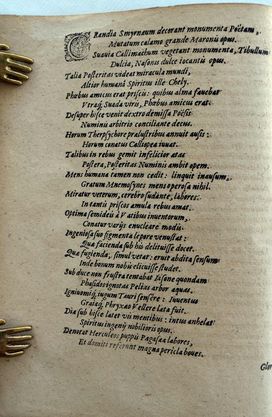 GRandia Smyrnæum decerant monumenta Poëtam,
Mutatum calamo grande Maronis opus.
Suavia Callimachum vegetant monumenta, Tibullum
Dulcia, Nasonis dulce iocantis opus.
Talia Posteritas videat miracula mundi,
Altior humani Spiritus ille Chely.
Phœbus amicus erat priscis: quibus alma fauebat
Vraq; Suada viris, Phœbus amicus erat.
Desuper hisce venit dextro demissa Poësis
Numinis arbitrio conciliante decus.
Horum Therpsychore prælustribus annuit ausis:
Horum conatus Calliopea iuuat.
Talibus in rebus gemit infelicior ætas
Postera, Posteritas Numinis ambit opem.
Mens humana tamen non cedit: linquit inausum,
Gratum Mnemosynes mens operosa nihil.
Miratur veterum, cerebro sudante, labores:
In tantis priscos amula rebus amat.
Optima semideûm Vatibus inuentorum,
Conatur varijs enucleare modis.
Ingeniosa suo figmenta lepore venustat:
Qua facienda sub his delituisse docet.
Qua fugienda, simul vetat: eruit abdita sensum
Inde bonum nobis elicuisse studet.
Sub duce non frustra tentabat Iasone quondam
Phasidos ignotas Pelias arbor aquas.
Ignivomûq; iugum Tauri sensere: Iuventus
Graiaq; Phryxeo Vellere læta fuit.
Dia sub hisce latet vis mentibus: intus anhelat
Spiritus ingenij nobilioris opus.
Denotat Herculeos puppis Pagasæa labores,
Et domiti referunt magna pericla boues.